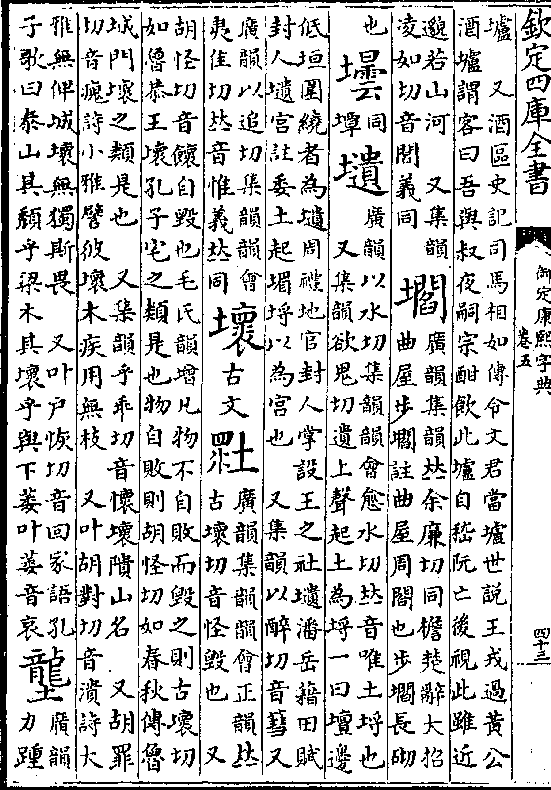 欽定四庫全書
御定康熙字典
卷五
四十三
壚 又酒區史記司馬相如傳令文君當壚世說王戎過黃公
酒壚謂客曰吾與叔夜嗣宗酣飲此壚自嵇阮亡後視此雖近
邈若山河 又集韻
凌如切音閭義同
壛
廣韻集韻𠀤余廉切同檐楚辭大招
曲屋步壛註曲屋周閣也步壛長砌
也
壜
同
墰
壝
廣韻以水切集韻韻會愈水切𠀤音唯土埒也
又集韻欲鬼切遺上聲起土為埒一曰壇邊
低垣圍繞者為壝周禮地官封人掌設王之社壝潘岳籍田賦
封人壝宮註委土起堳埒以為宮也 又集韻以醉切音 又
廣韻以追切集韻韻會
夷隹切𠀤音惟義𠀤同
壞
古文
廣韻集韻韻會正韻𠀤
古壞切音怪毀也 又
胡怪切音自毀也毛氏韻增凡物不自敗而毀之則古壞切
如魯恭王壞孔子宅之類是也物自敗則胡怪切如春秋傳魯
城門壞之類是也 又集韻乎乖切音懷壞隤山名 又胡罪
切音瘣詩小雅譬彼壞木疾用無枝 又叶胡對切音潰詩大
雅無俾城壞無獨斯畏 又叶戶恢切音回家語孔
子歌曰泰山其頹乎梁木其壞乎與下萎叶萎音衰
壟
廣韻
力踵